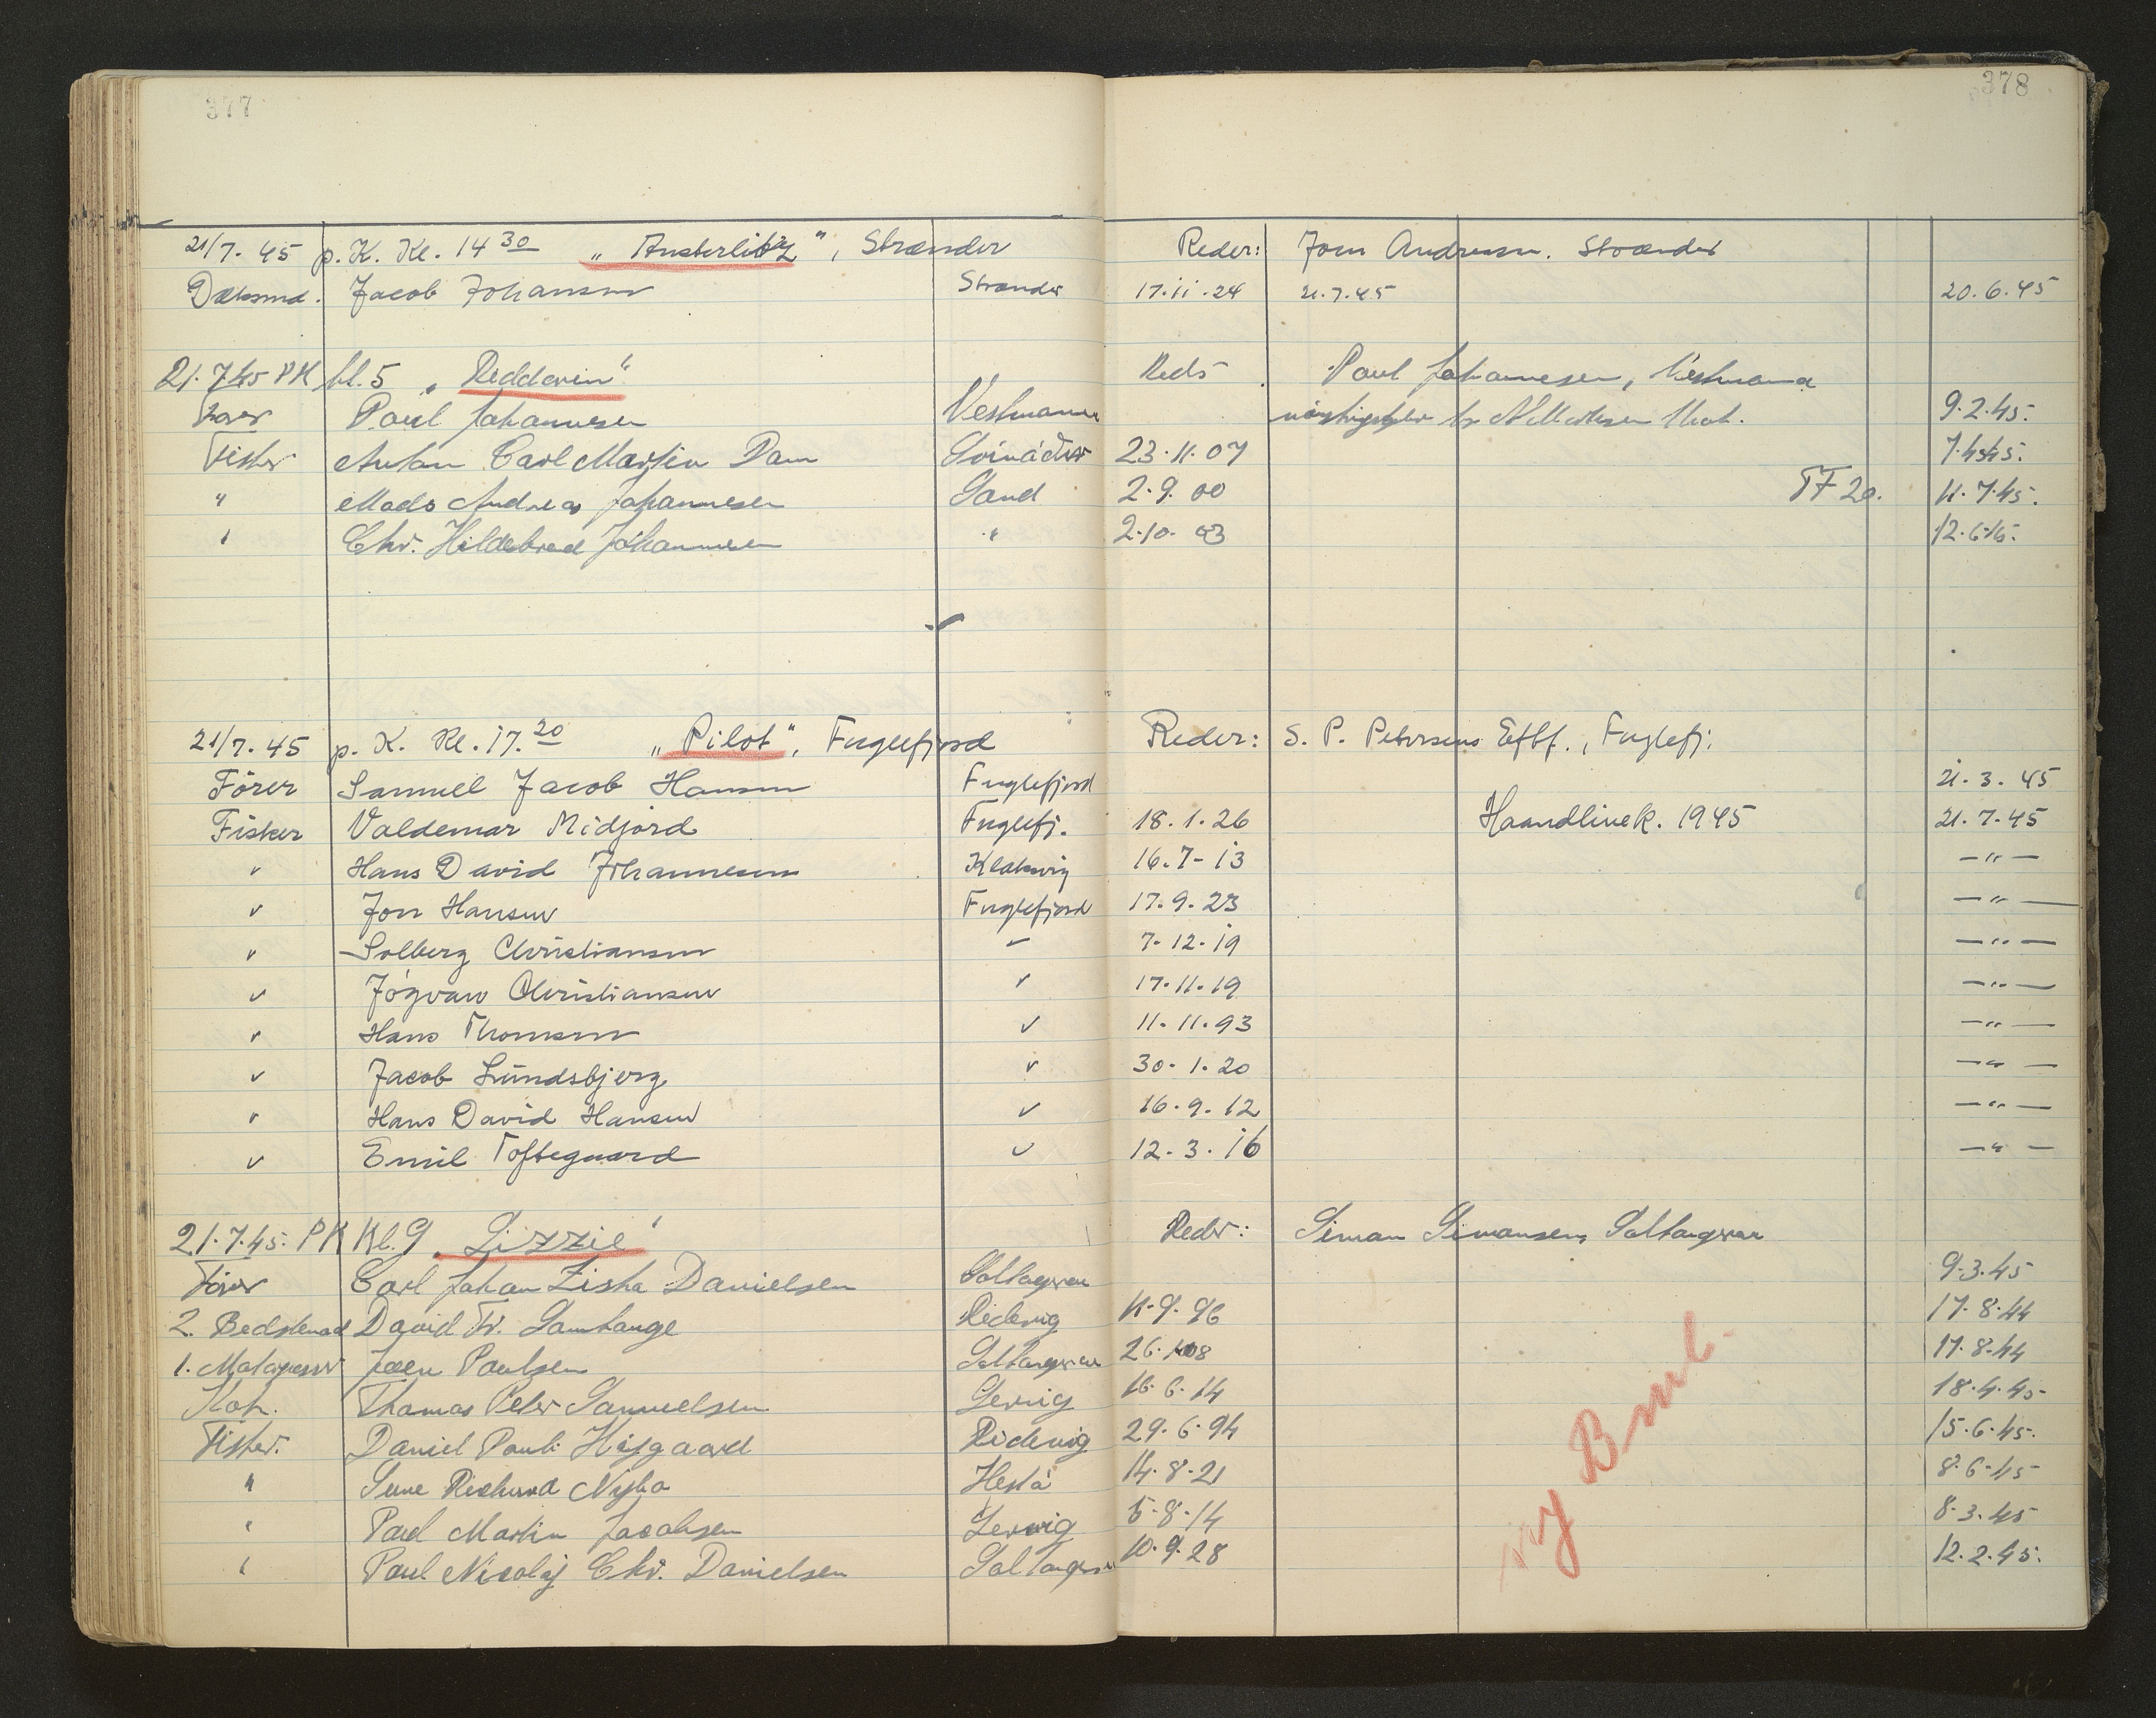 377
378
21/7. 45 p. K. Kl. 14 30 „Austerlitz", Strænder Reder: Joen Andreasen. Strænder
Dæksmd. Jacob Johansen Strænder 17.11.24 21.7.45 20.6.45
21.7.45 PK kl. 5 „ " Reder Paul Johannesen, Vestmanna
Fører Paul Johannesen Vestmanna 9.2.45.
Fisker Anton Carl Martin Dam 23.11.07 7.4.45.
" Mads Andreas Johannesen Sand 2.9.00 TF 20. 11.7.45.
" Chr. Hildebrad Johannesen " 2.10.03 12.6.45.
21/7. 45 p. K. Kl. 17.20 „Pilot", Fuglefjord Reder: S. P. Petersens Eftf., Fuglefj.
Förer Samuel Jacob Hansen Fuglefjord 21.3.45
Fisker Valdemar Midjord Fuglefj. 18.1.26 Haandlinek. 1945 21.7.45
" Hans David Johannesen Klaksvig 16.7-13 —"—
" Jon Hansen Fuglefjord 17.9.23 —"—
" Solberg Christiansen " 7.12.19 —"—
" Jógvan Christiansen " 17.11.19 —"—
" Hans Thomsen " 11.11.93 —"—
" Jacob Lündsbjerg " 30.1.20 —"—
" Hans David Hansen " 16.9.12 —"—
" Emil Toftegaard " 12.3.16 —"—
21.7.45. PK Kl. 9 „Lizzie" Reder: Siman Simonsen, Saltangraa
Fører Carl Johan Ziska Danielsen Saltangraa 9.3.45
2. Bedstemd David Fr. Samtange Ridevig 11.9.96 17.8.44
1. Motorpasser Joen Poulsen Saltangraa 17.8.44
Kok. Thomas Peter Samuelsen Lervig 16.6.14 18.4.45
Fisker. Daniel Pauli Højgaard Ridevig 29.6.94 15.6.45.
" Sune Richard Nysta 14.8.21 8.6.45
" Paul Martin Jacobsen Lervig 5.8.14 8.3.45
" Paul Nicolaj Chr. Danielsen Saltangraa 10.9.28 12.2.45.
ny Bml.